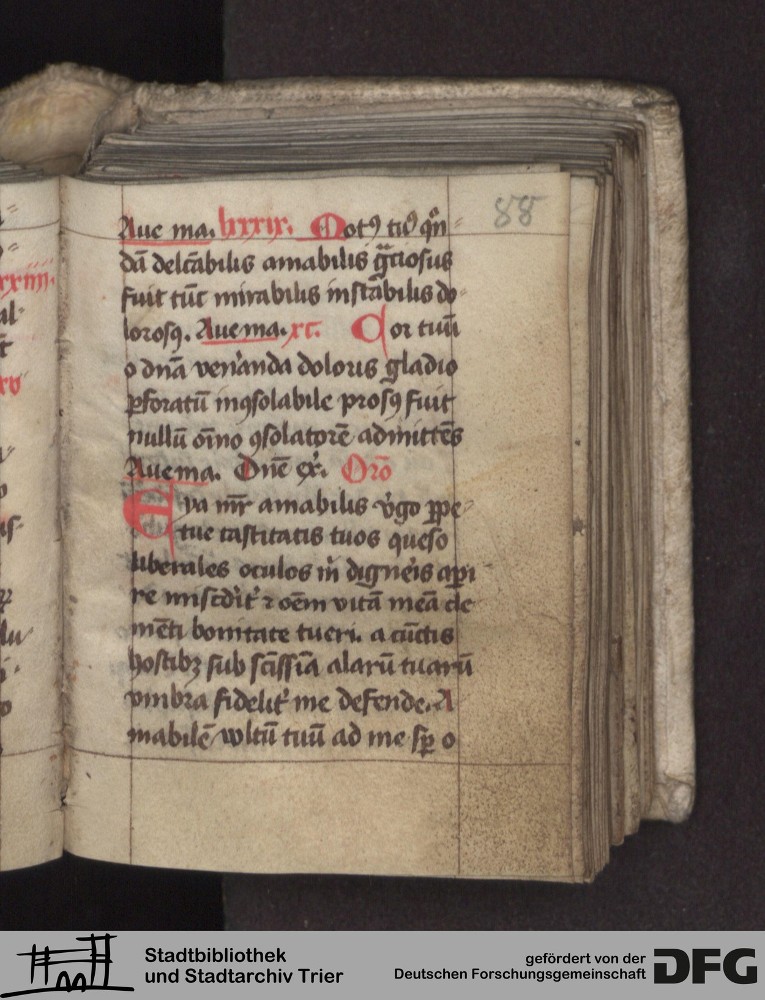 88
Aue ma. lxxxix. Totꝯ tuꝯ qn̄
dā delcābilis amabilis gͣciosus
fuit tūc mirabilis inſtābilis do
lorosꝯ. Aue ma. xc. Cor tuū
o dn̄a ven̄anda doloris gladio
ꝑforatū inꝯſolabile prosꝯ fuit
nullū oīno ꝯſolatorē admittēs
Aue ma. Dn̄e ex̄. Orō
Eya mr̄ amabilis v̄go ꝑpe
tue castitatis tuos queso
liberales oculos in
re ⁊ oēm vitā meā cle
mēti bonitate tueri. a cūctis
hostibꝫ sub alarū tuarū
vmbra fidelit̄ me defende. A
mabilē wltū tuū ad me sꝑ o
Stadtbibliothek
und Stadtarchiv Trier
gefördert von der
Deutschen Forschungsgemeinschaft
DFG